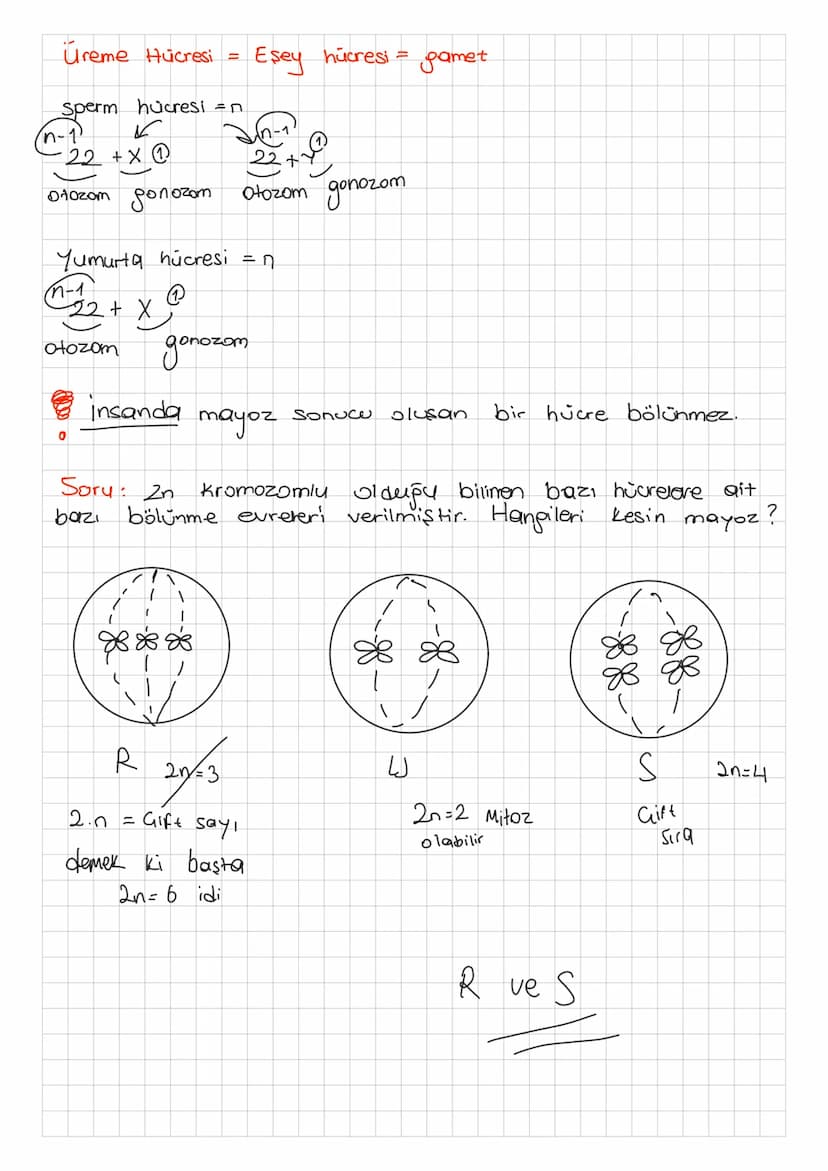 Üreme Hücresi = Eşey hücresi = gamet
sperm hücresi = n
n-1 n-1
22 + X 1 22 + Y 1
otozom gonozom otozom gonozom
Yumurta hücresi = n
n-1
22 + X 1
otozom gonozom
! insanda mayoz sonucu oluşan bir hücre bölünmez.
Soru: 2n kromozomlu olduğu bilinen bazı hücrelere ait
bazı bölünme evreleri verilmiştir. Hangileri kesin mayoz?
R 2n=3
2.n = Çift sayı
demek ki başta
2n=6 idi
2n=2 Mitoz
olabilir
S 2n=4
Çift
sıra
R ve S